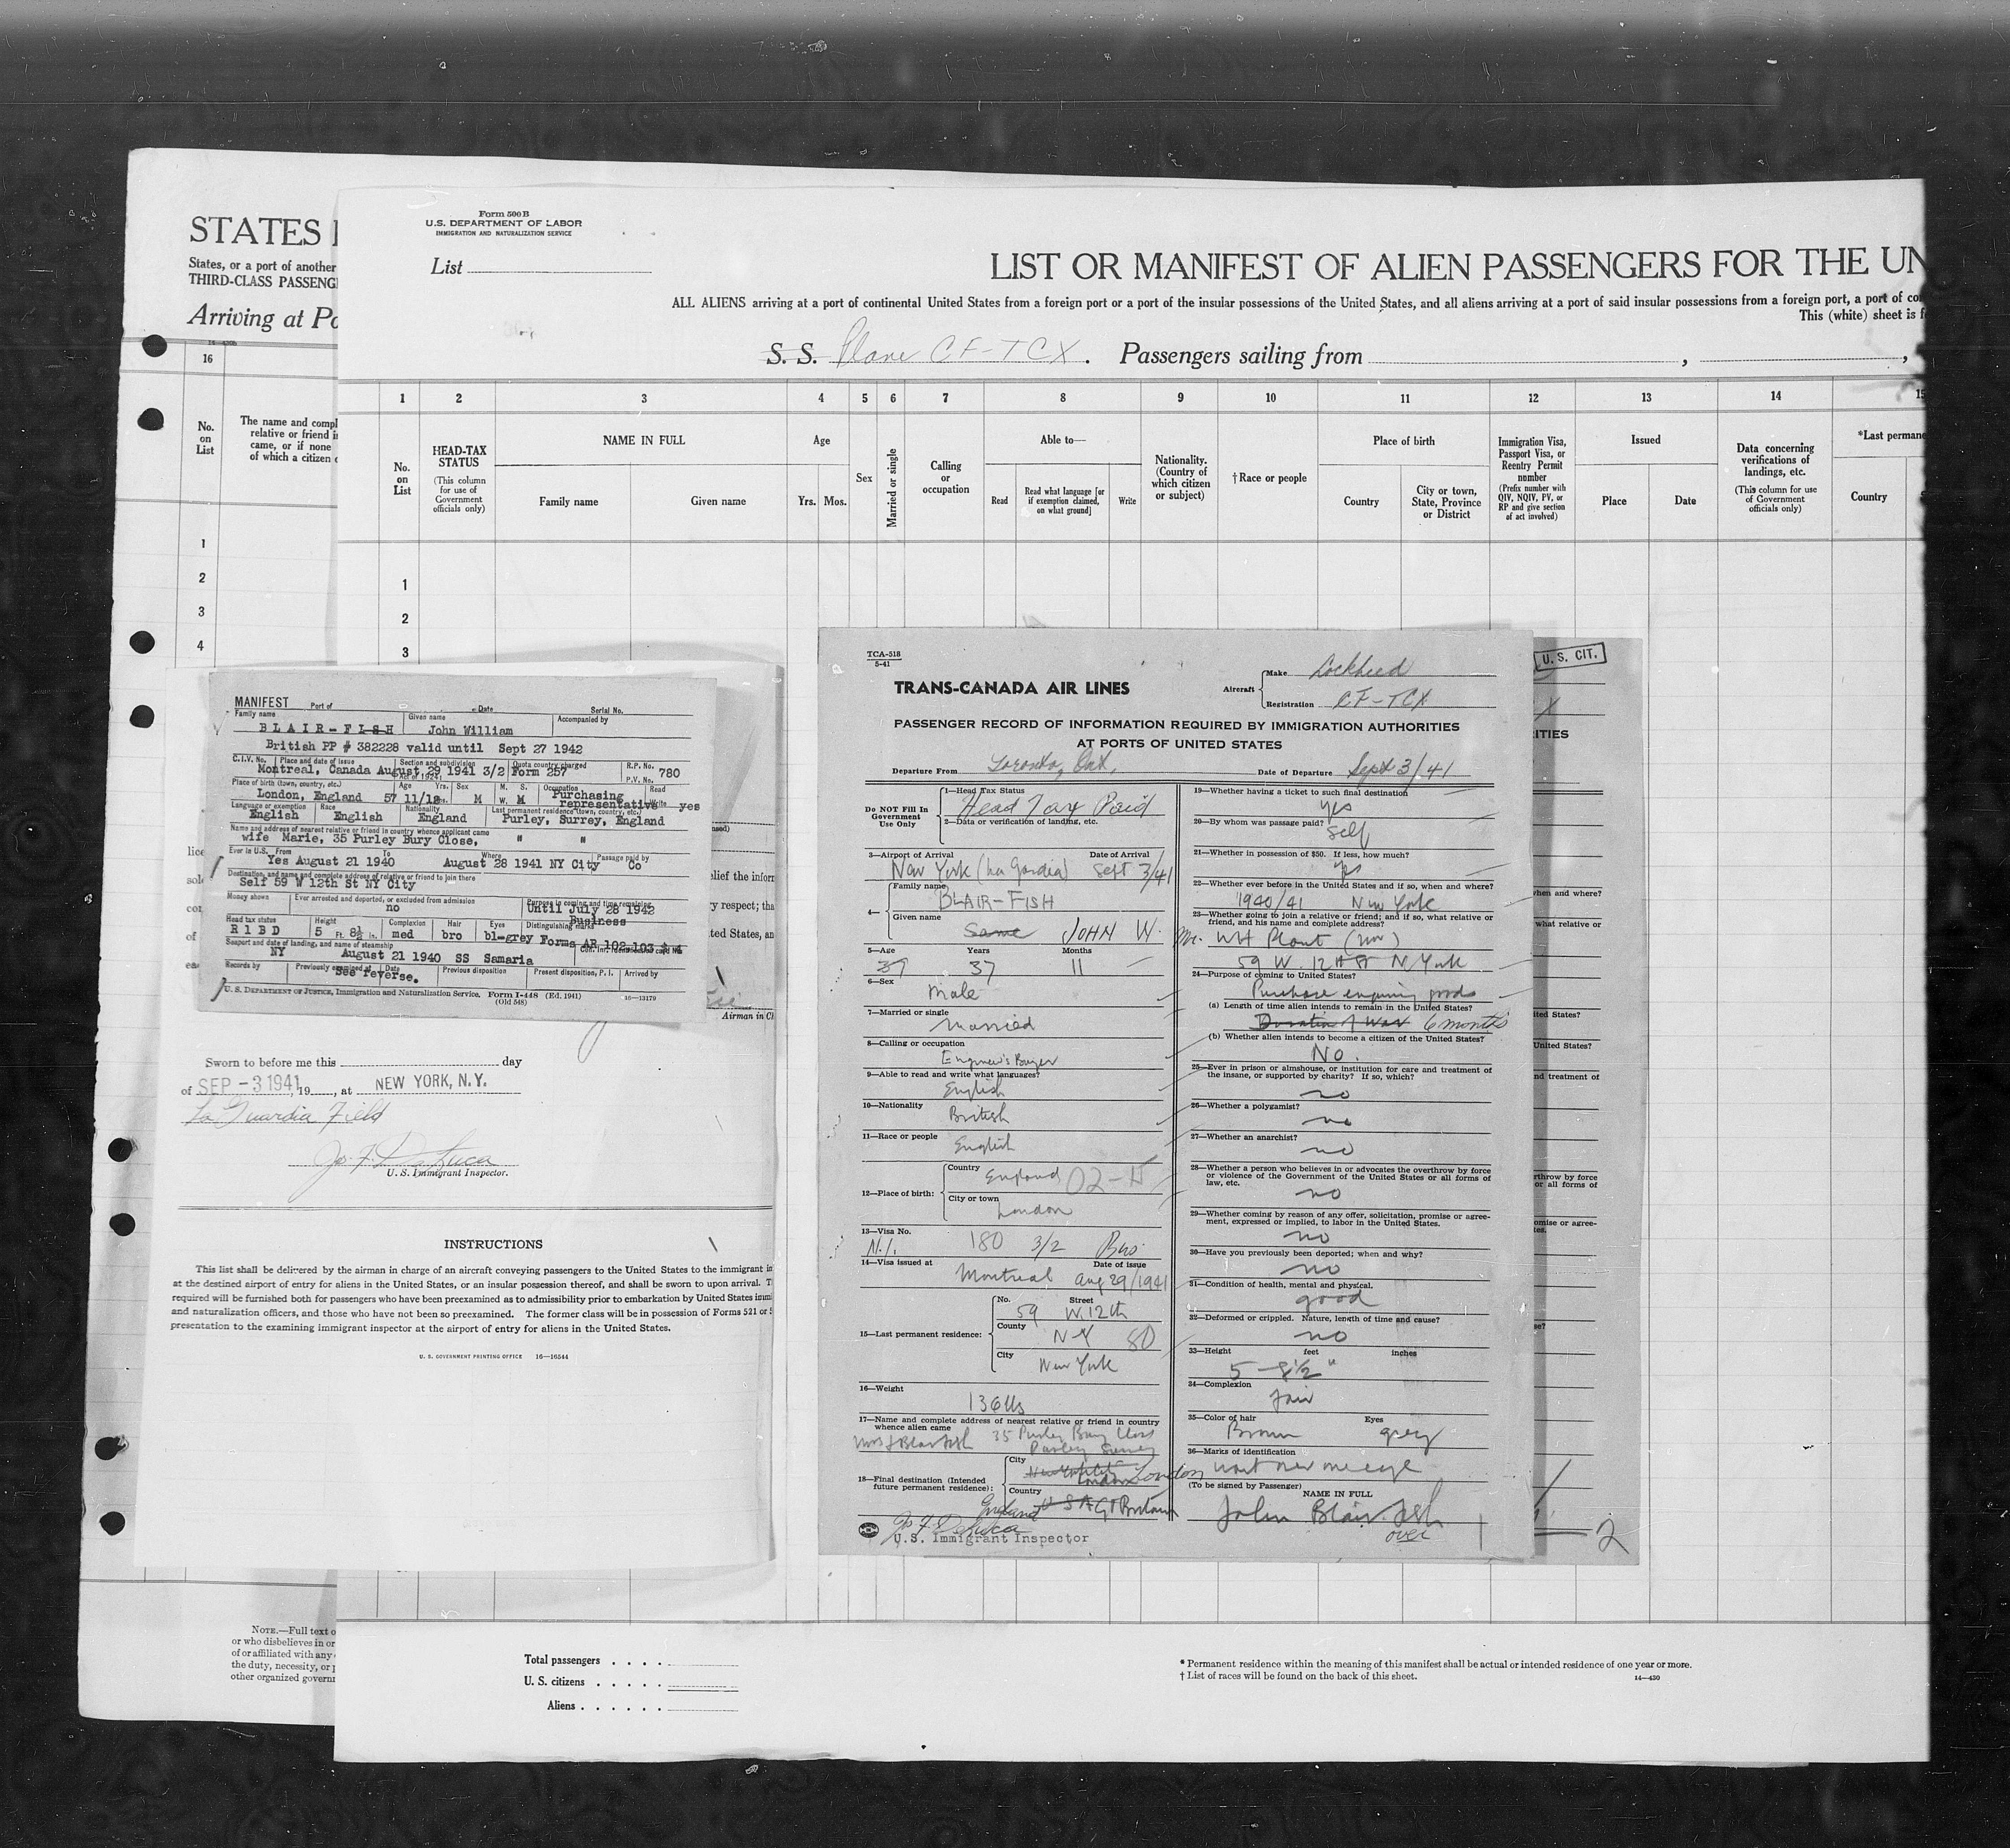 STATES
States, or a port of another
THIRD-CLASS PASSENG
Arriving at Po
16
No.
on
List
The name and compl
relative or friend i
came, or if none
of which a citizen
1
2
3
4
Form 500 B
U.S. DEPARTMENT OF LABOR
IMMIGRATION AND NATURALIZATION SERVICE
List
LIST OR MANIFEST OF ALIEN PASSENGERS FOR THE UN
ALL ALIENS arriving at a port of continental United States from a foreign port or a port of the insular possessions of the United States, and all aliens arriving at a port of said insular possessions from a foreign port, a port of co
This (white) sheet is f
S. S. Plane CF-TCX. Passengers sailing from , ,
1 2 3 4 5 6 7 8 9 10 11 12 13 14 15
No.
on
List
HEAD-TAX
STATUS
(This column
for use of
Government
officials only)
NAME IN FULL
Family name Given name
Age
Yrs. Mos.
Sex
Married or single
Calling
or
occupation
Able to—
Read
Read what language [or
if exemption claimed,
on what ground]
Write
Nationality.
(Country of
which citizen
or subject)
† Race or people
Place of birth
Country
City or town,
State, Province
or District
Immigration Visa,
Passport Visa, or
Reentry Permit
number
(Prefix number with
QIV, NQIV, PV, or
RP and give section
of act involved)
Issued
Place Date
Data concerning
verifications of
landings, etc.
(This column for use
of Government
officials only)
*Last permane
Country
1
2
3
MANIFEST Port of Date Serial No.
Family name Given name Accompanied by
BLAIR-FISH John William
British PP # 382228 valid until Sept 27 1942
C.I.V. No. Place and date of issue Section and subdivision Quota country charged R.P. No.
Montreal, Canada August 29 1941 3/2 Form 257 P.V. No. 780
Place of birth (town, country, etc.) Age Yrs. Sex M. S. Occupation Read
London, England 57 11/12 M W. M Purchasing representative Write yes
Language or exemption Race Nationality Last permanent residence (town, country, etc.)
English English England Purley, Surrey, England
Name and address of nearest relative or friend in country whence applicant came
wife Marie, 35 Purley Bury Close, " "
Ever in U.S. From To Where Passage paid by
Yes August 21 1940 August 28 1941 NY City Co
Destination, and name and complete address of relative or friend to join there
Self 59 W 12th St NY City
Money shown Ever arrested and deported, or excluded from admission Purpose in coming and time remaining
no Until July 28 1942
Business
Head tax status Height Complexion Hair Eyes Distinguishing marks
R 1 B D 5 Ft. 8½ In. med bro bl-grey Forms AR 102-103 # 4
Seaport and date of landing, and name of steamship
NY August 21 1940 SS Samaria
Records by Previously examined at Date Previous disposition Present disposition, P. I. Arrived by
See reverse.
U. S. DEPARTMENT OF JUSTICE, Immigration and Naturalization Service. Form I-448 (Ed. 1941)
(Old 548)
16—13179
elief the inform
y respect; tha
ted States, an
Airman in Ch
Sworn to before me this day
of SEP -3 1941, 19 , at NEW YORK, N.Y.
La Guardia Field
Jo. F. DeLuca
U. S. Immigrant Inspector.
INSTRUCTIONS
This list shall be delivered by the airman in charge of an aircraft conveying passengers to the United States to the immigrant in
at the destined airport of entry for aliens in the United States, or an insular possession thereof, and shall be sworn to upon arrival. T
required will be furnished both for passengers who have been preexamined as to admissibility prior to embarkation by United States immi
and naturalization officers, and those who have not been so preexamined. The former class will be in possession of Forms 521 or 5
presentation to the examining immigrant inspector at the airport of entry for aliens in the United States.
U. S. GOVERNMENT PRINTING OFFICE 16—16544
TCA-518
5-41
TRANS-CANADA AIR LINES
Aircraft
Make Lockheed
Registration CF-TCX
PASSENGER RECORD OF INFORMATION REQUIRED BY IMMIGRATION AUTHORITIES
AT PORTS OF UNITED STATES
Departure From Toronto, Ont. Date of Departure Sept 3/41
Do NOT Fill In
Government
Use Only
1—Head Tax Status
Head Tax Paid
2—Data or verification of landing, etc.
3—Airport of Arrival Date of Arrival
New York (La Gardia) Sept 3/41
4—
Family name
BLAIR-FISH
Given name
Same JOHN W.
5—Age Years Months
37 37 11
6—Sex
Male
7—Married or single
Married
8—Calling or occupation
Engineer's Buyer
9—Able to read and write what languages?
English
10—Nationality
British
11—Race or people
English
12—Place of birth:
Country
England 02-H
City or town
London
13—Visa No.
N.I. 180 3/2 Bus.
14—Visa issued at Date of issue
Montreal Aug 29/1941
15—Last permanent residence:
No. Street
59 W. 12th
County
N-Y 80
City
New York
16—Weight
136 lbs
17—Name and complete address of nearest relative or friend in country
whence alien came
Mrs J Blairfish 35 Purley Bury Close
Purley Surrey
18—Final destination (Intended
future permanent residence):
City
London London
Country
England U S A Gt Britain
Jo. F. DeLuca
U.S. Immigrant Inspector
19—Whether having a ticket to such final destination
yes
20—By whom was passage paid?
Self
21—Whether in possession of $50. If less, how much?
Yes
22—Whether ever before in the United States and if so, when and where?
1940/41 New York
23—Whether going to join a relative or friend; and if so, what relative or
friend, and his name and complete address?
Mr. WH Plant
59 W. 12th St N. York
24—Purpose of coming to United States?
Purchase enquiring goods
(a) Length of time alien intends to remain in the United States?
Duration of War 6 months
(b) Whether alien intends to become a citizen of the United States?
No.
25—Ever in prison or almshouse, or institution for care and treatment of
the insane, or supported by charity? If so, which?
no
26—Whether a polygamist?
no
27—Whether an anarchist?
no
28—Whether a person who believes in or advocates the overthrow by force
or violence of the Government of the United States or all forms of
law, etc.
no
29—Whether coming by reason of any offer, solicitation, promise or agree-
ment, expressed or implied, to labor in the United States.
no
30—Have you previously been deported; when and why?
no
31—Condition of health, mental and physical.
good
32—Deformed or crippled. Nature, length of time and cause?
no
33—Height feet inches
5 - 8½"
34—Complexion
fair
35—Color of hair Eyes
Brown grey
36—Marks of identification
wart over one eye
(To be signed by Passenger) NAME IN FULL
John Blair-Fish
over
U. S. CIT.
X
ITIES
hen and where?
what relative or
ited States?
United States?
nd treatment of
rthrow by force
or all forms of
omise or agree-
tes.
se?
2
NOTE.—Full text o
or who disbelieves in or
of or affiliated with any
the duty, necessity, or p
other organized governm
Total passengers . . . .
U. S. citizens . . . . .
Aliens . . . . . .
* Permanent residence within the meaning of this manifest shall be actual or intended residence of one year or more.
† List of races will be found on the back of this sheet.
14—430